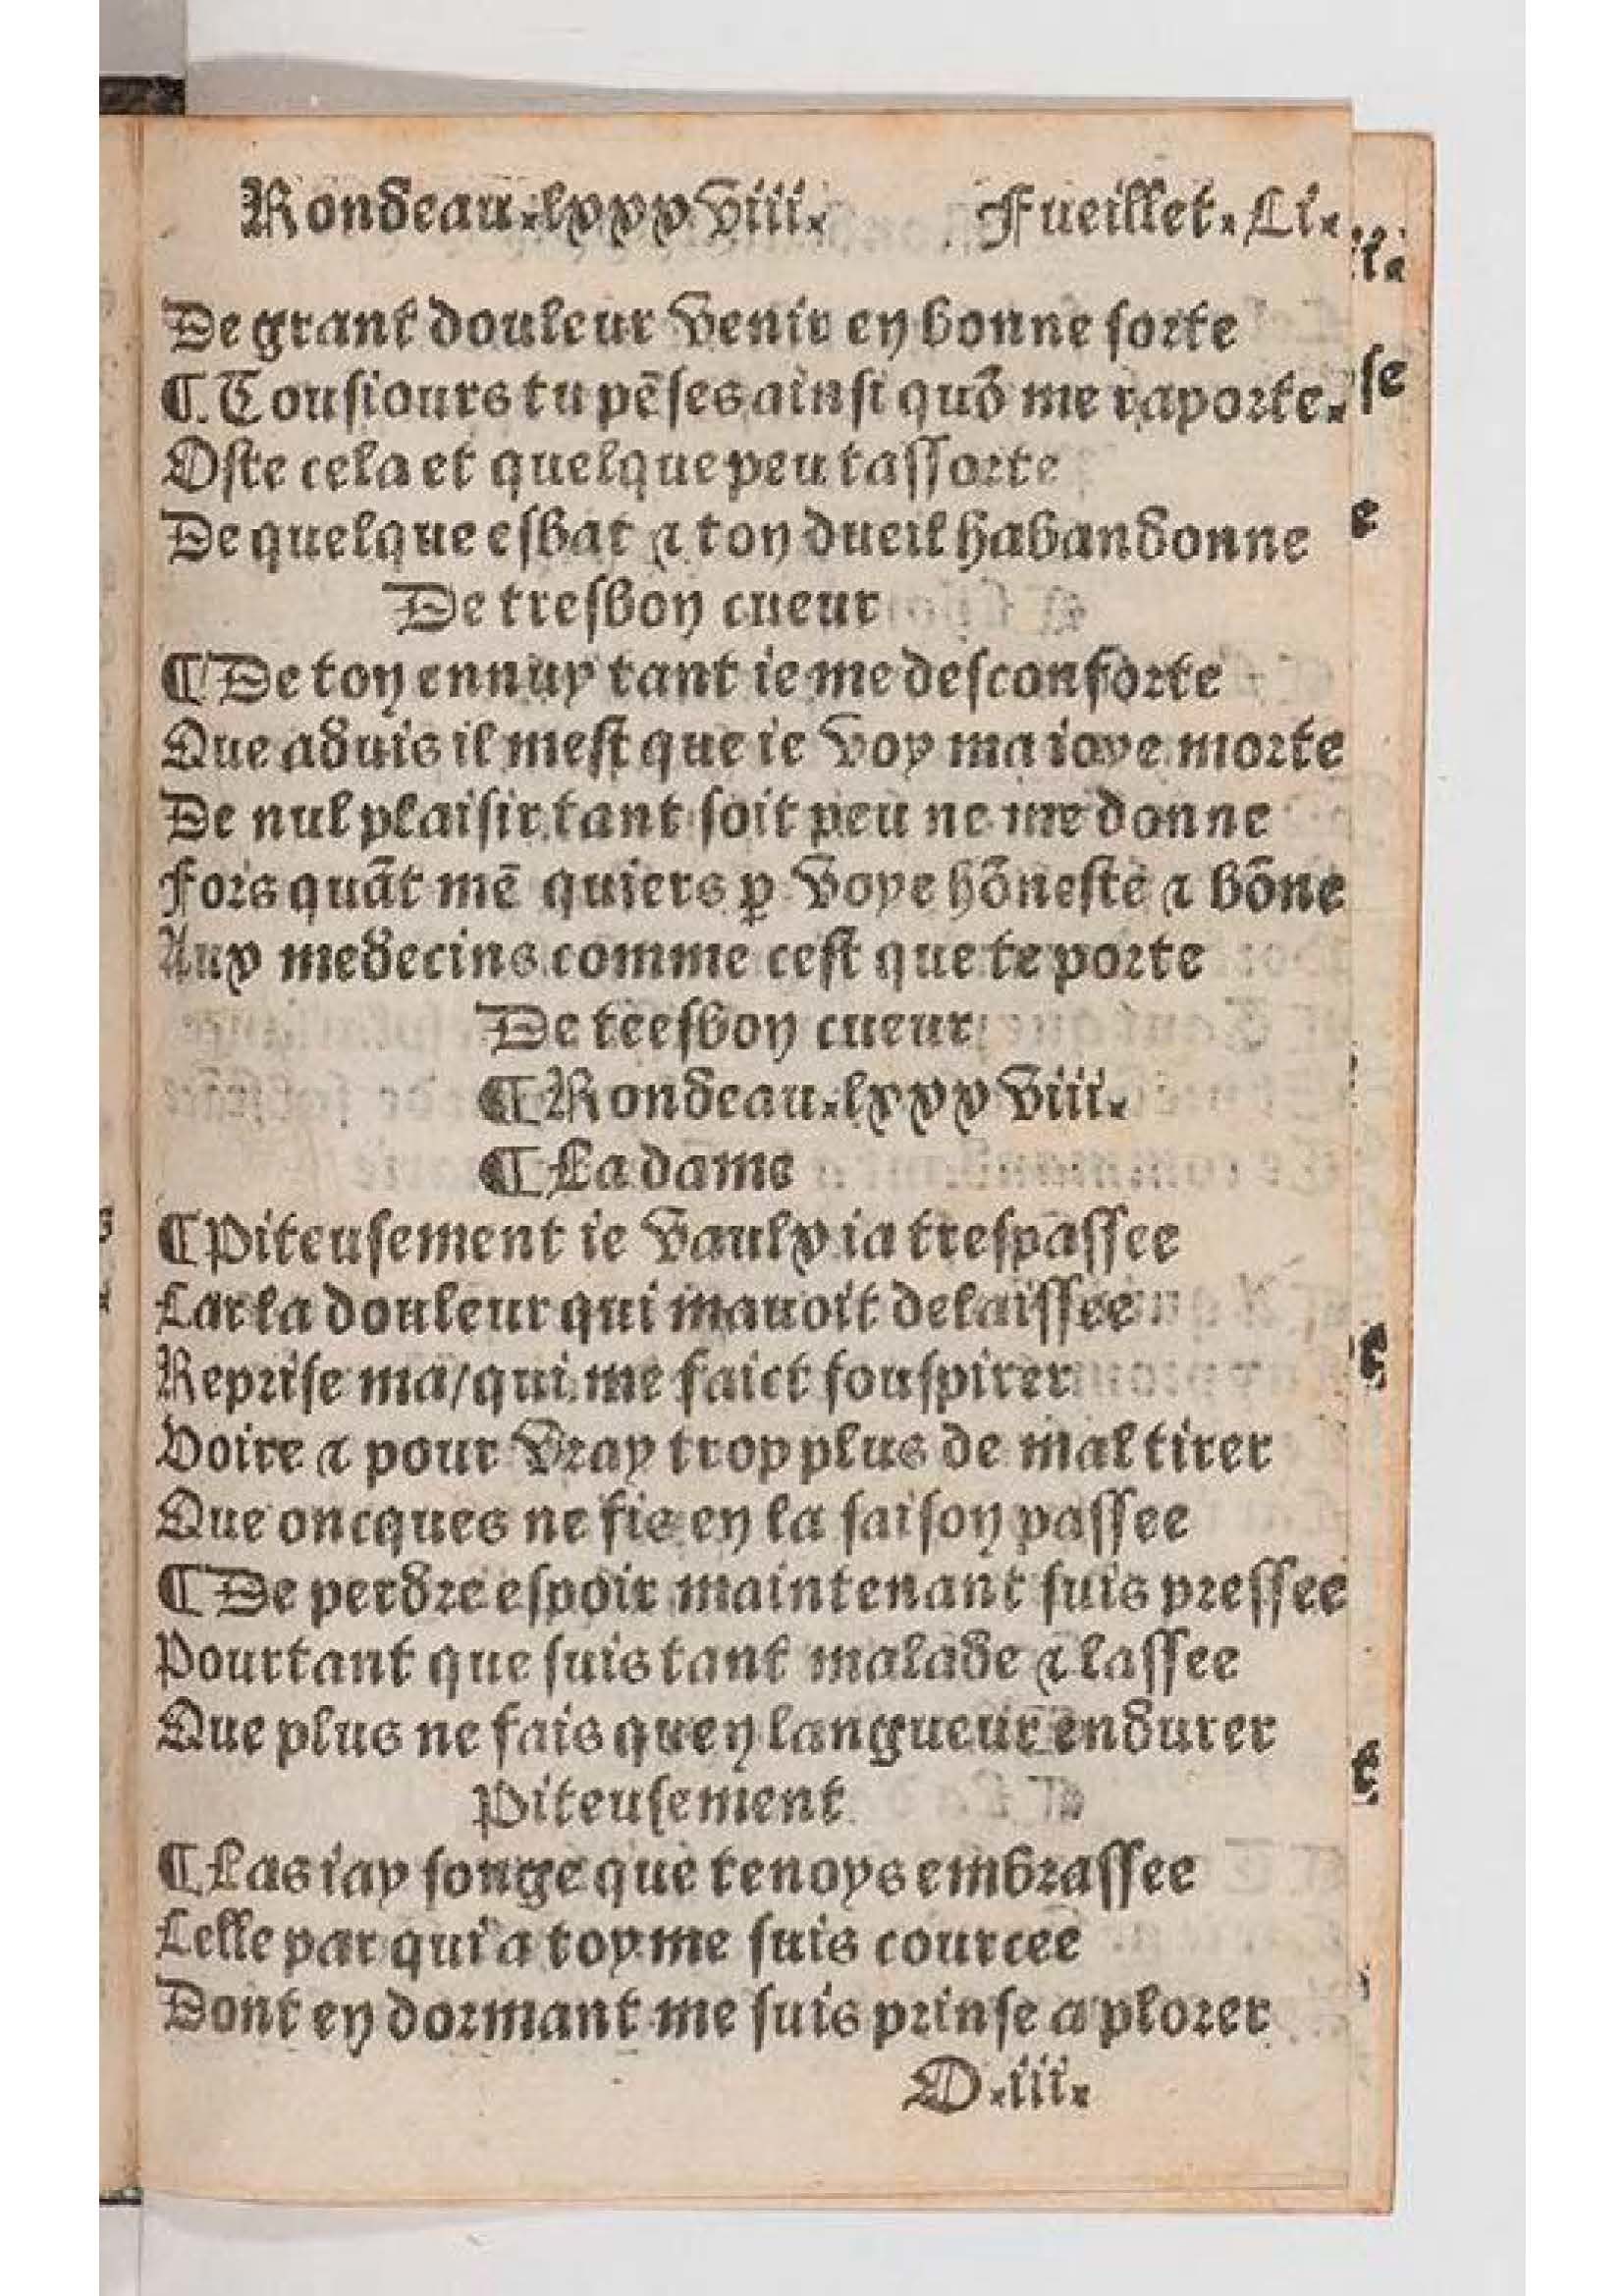 Rondeau.lxxxviii. Fueillet.Li.
De grant douleur venir en bonne sorte
¶ Tousiours tu pēses ainsi quō me raporte.
Oste cela et quelque peu tassorte
De quelque esbat ⁊ ton dueil habandonne
De tresbon cueur
¶ De ton ennuy tant ie me desconforte
Que aduis il mest que ie voy ma ioye morte
De nul plaisir tant soit peu ne me donne
Fors quāt mē quiers ꝑ voye hōneste ⁊ bōne
Aux medecins comme cest que te porte
De teesbon cueur
¶ Rondeau.lxxxviii.
¶ La dame
¶ Piteusement ie vaulx ia trespassee
Car la douleur qui mauoit delaissee
Reprise ma/qui me faict souspirer
Voire ⁊ pour vray trop plus de mal tirer
Que oncques ne fis en la saison passee
¶ De perdre espoir maintenant suis pressee
Pourtant que suis tant malade ⁊ lassee
Que plus ne fais quen langueur endurer
Piteusement
¶ Las iay songe que tenoys embrassee
Celle par qui a toy me suis courcee
Dont en dormant me suis prinse a plorer
O.iii.